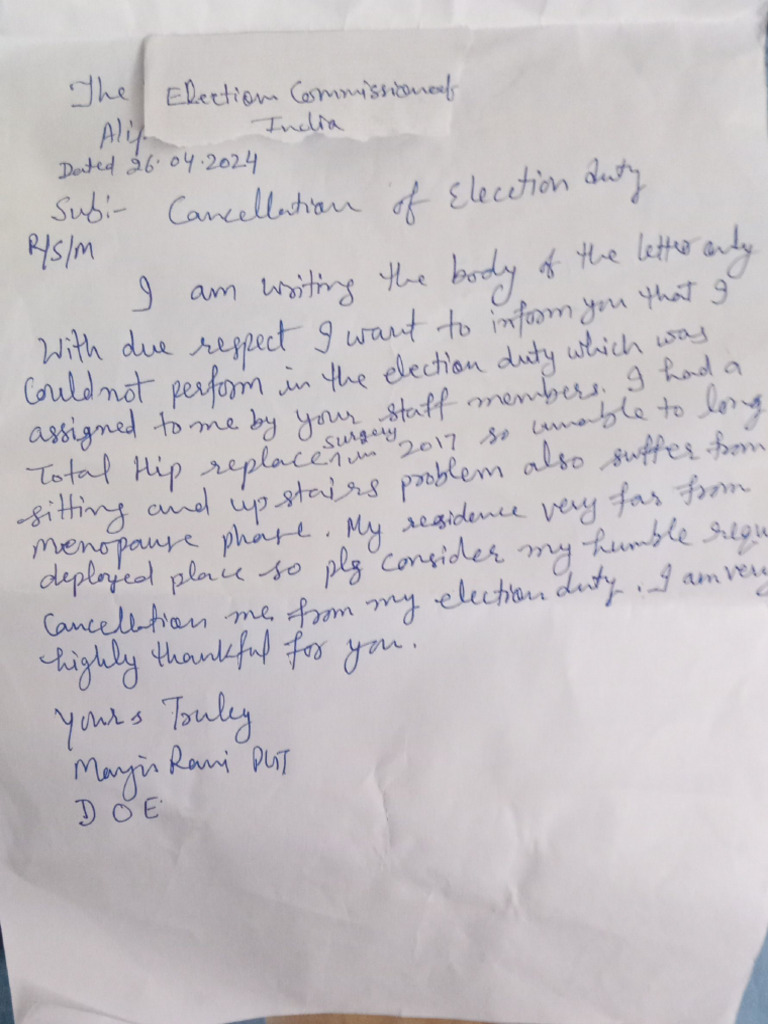 The Election Commissioneof
India
Alip
Dated 26.04.2024
Sub:- Cancellation of Elecetion duty
R/S/M
I am writing the body of the letter only
With due respect I want to inform you that I
Couldnot perform in the election duty which was
assigned to me by your staff members. I had a
Total Hip replace surgery in 2017 so unable to long
sitting and up stairs problem also suffer from
menopause phase. My residence very far from
deployed place so plg consider my humble requ
Cancellation me from my election duty. I am very
highly thankful for you.
Yours Truly
Rani PGT
D O E